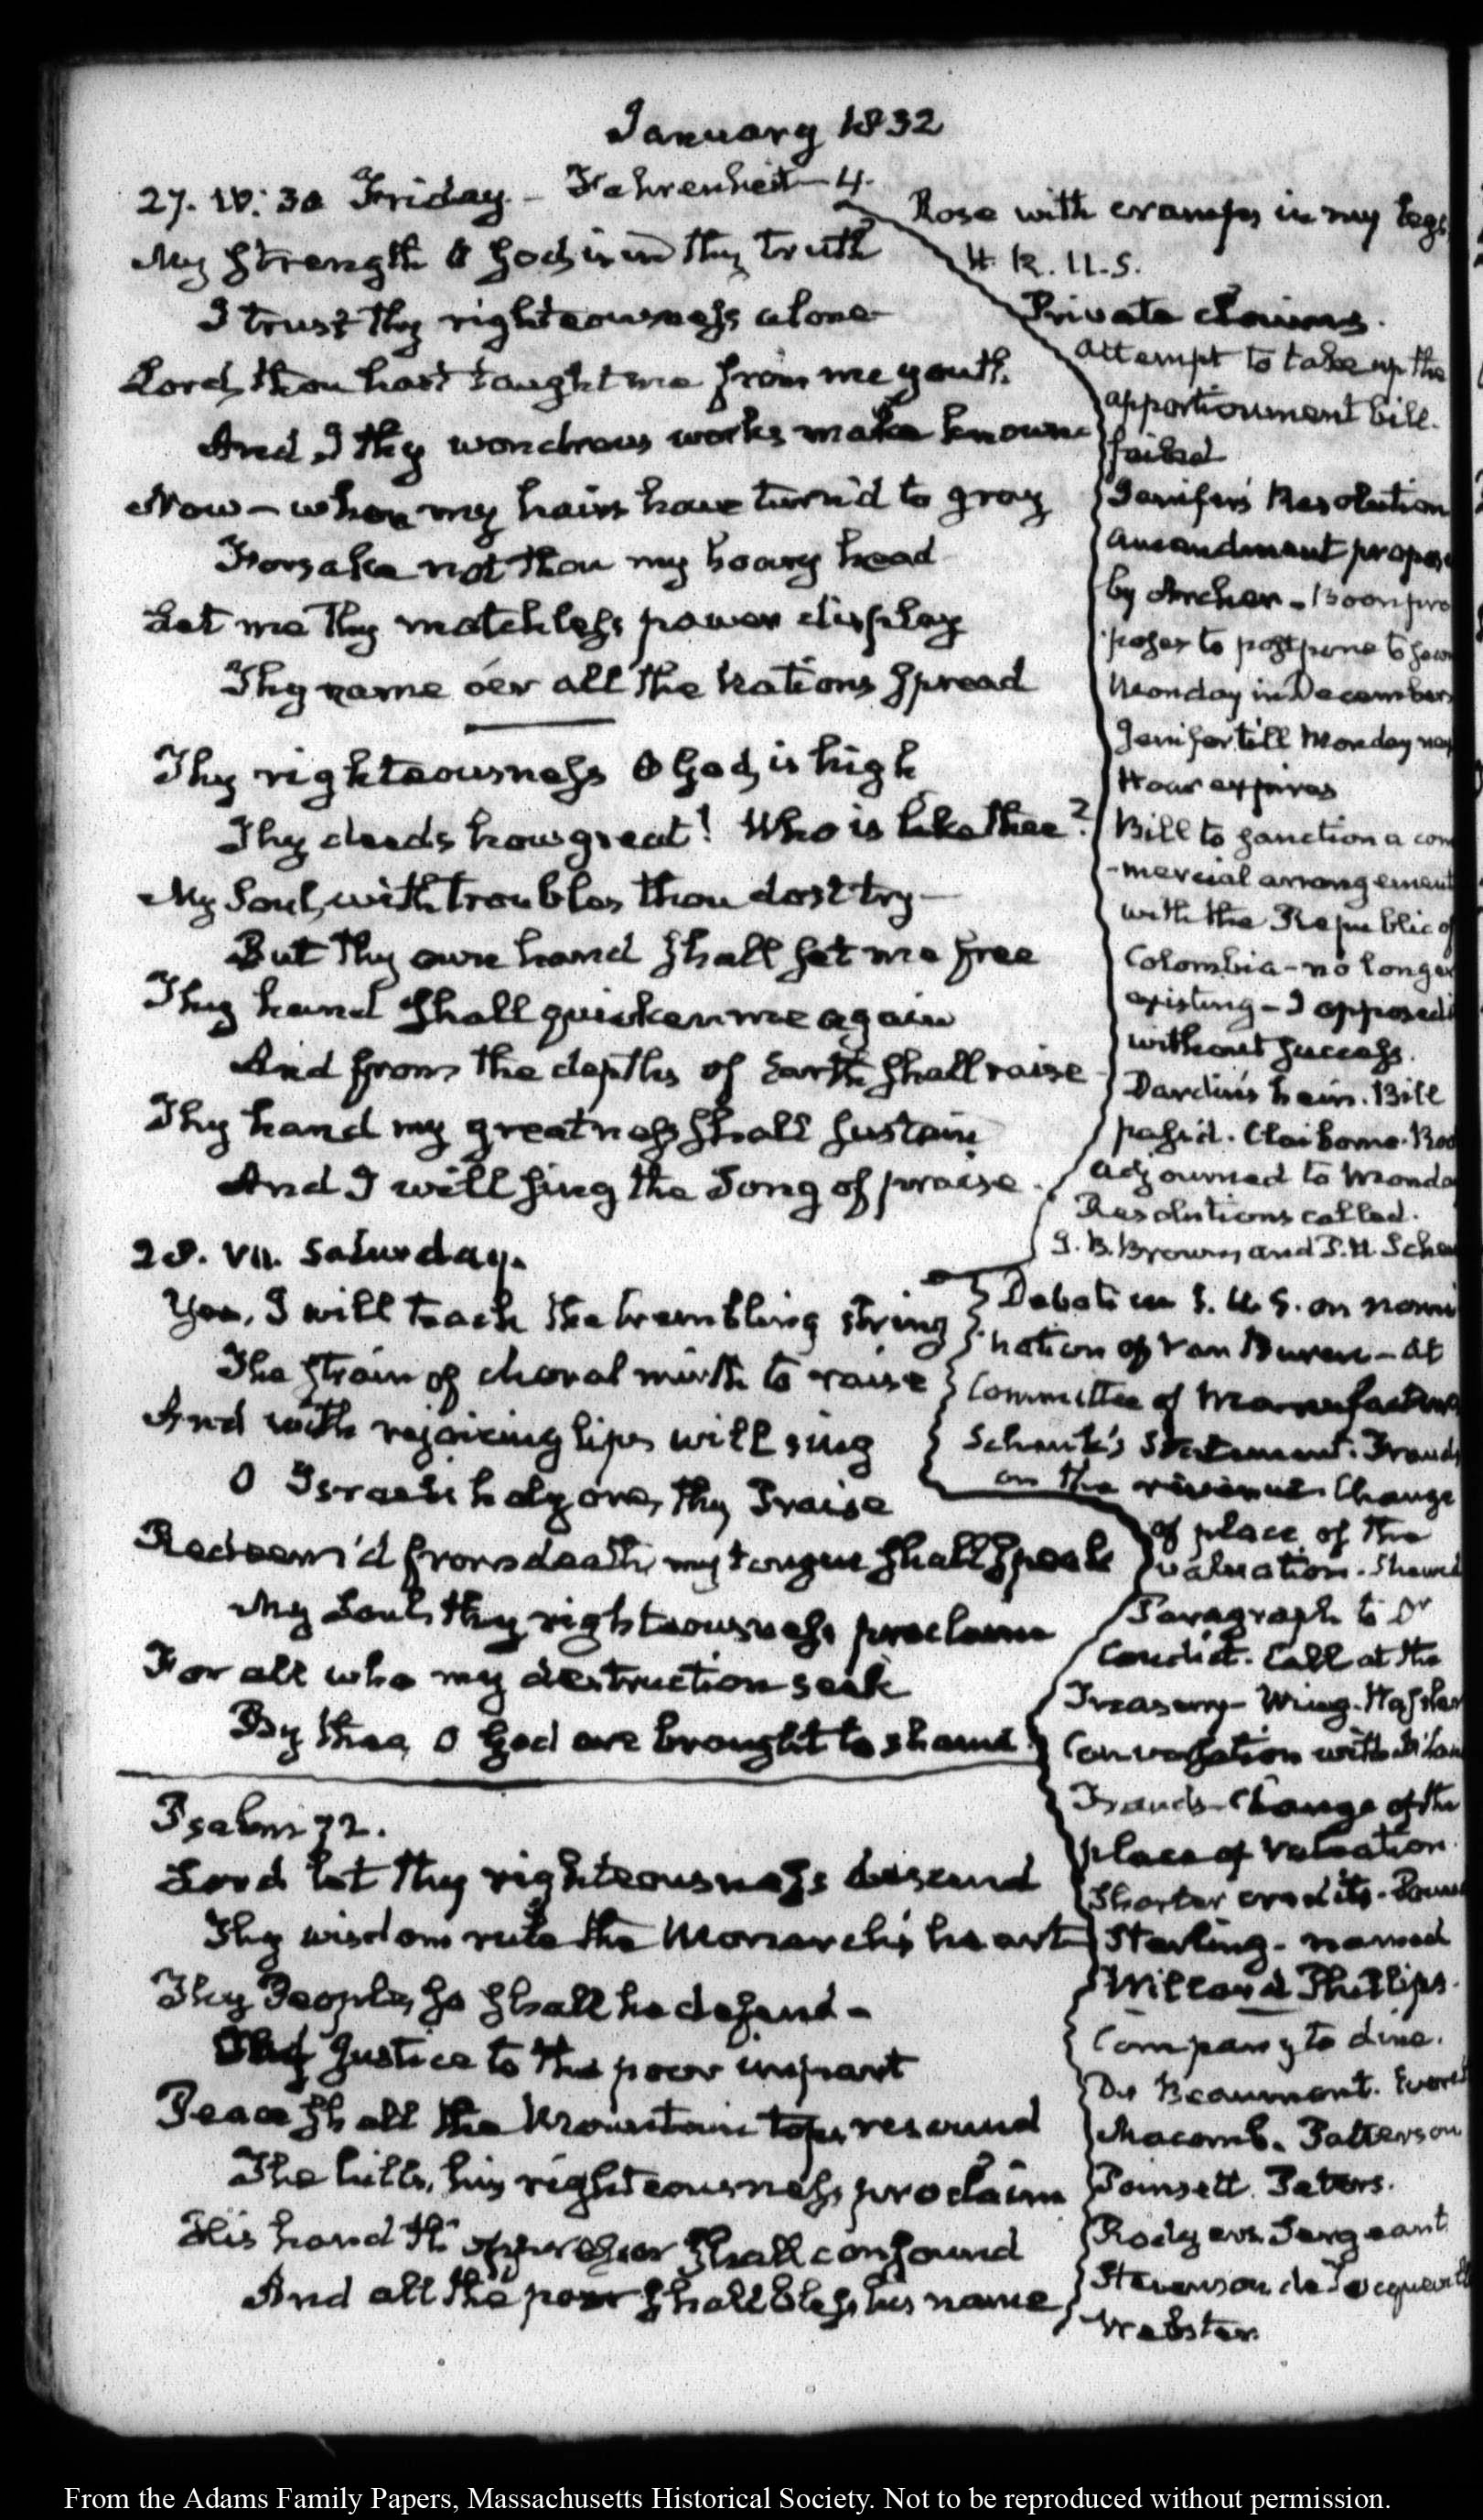 January 1832
27. IV: 30 Friday - Fahrenheit - 4.
My strength O God, is in thy truth
I trust thy righteousness alone
Lord, thou hast taught me from me youth.
And I thy wondrous works make known
Now - when my hairs have turn'd to gray
Forsake not thou my hoary head
Let me thy matchless power display
Thy name o'er all the Nations spread
Thy righteousness O God, is high
Thy deeds how great! Who is like thee?
My Soul, with troubles thou dost try -
But thy own hand shall set me free
Thy hand shall quicken me again
And from the depths of Earth shall raise
Thy hand my greatness shall sustain
And I will sing the Song of praise.
28. VII. Saturday.
Yea, I will teach the trembling string
The strain of choral mirth to raise
And with rejoicing lips will sing
O Israel's holy one, thy Praise
Redeem'd from death, my tongue shall speak
My Soul, thy righteousness proclaim
For all who my destruction seek
By thee, O God are brought to shame
Psalm 72.
Lord let thy righteousness descend
Thy wisdom rule the Monarch's heart
Thy People, so shall he defend -
Justice to the poor impart
Peace shall the Mountain tops resound
The hills, his righteousness proclaim
His hand th' oppressor shall confound
And all the poor shall bless his name
Rose with cramps in my legs
H. R. U.S.
Private claims.
attempt to take up the
apportionment bill.
failed
Jenifer's Resolution
amendment propos
by Archer - Boon pro
poses to postpone to
Monday in December
Jenifer till Monday nex
Hour expires
Bill to sanction a com
-mercial arrangement
with the Republic of
Colombia - no longer
existing - I opposed
without success.
Dardin's heirs. Bill
pass'd. Claiborne.
adjourned to Monda
Resolutions called.
J. B. Brown, and P. H. Sche
Debate in S. U.S. on nomi
nation of Van Buren - at
Committee of Manufactures
Schenk's Statement. Frauds
on the revenue. Change
of place of the
valuation. Shewed
Paragraph to Dr
Condict. Call at the
Treasury - Wing. Hassler
Conversation with
Frauds - Change of the
place of valuation
Shorter credits. Poun
Sterling - named
Willard Phillips.
Company to dine.
Dr Beaumont. Everet
Macomb. Patterson
Poinsett. Peters.
Rodgers. Sergeant
Stevenson de Tocquevill
Webster
From the Adams Family Papers, Massachusetts Historical Society. Not to be reproduced without permission.